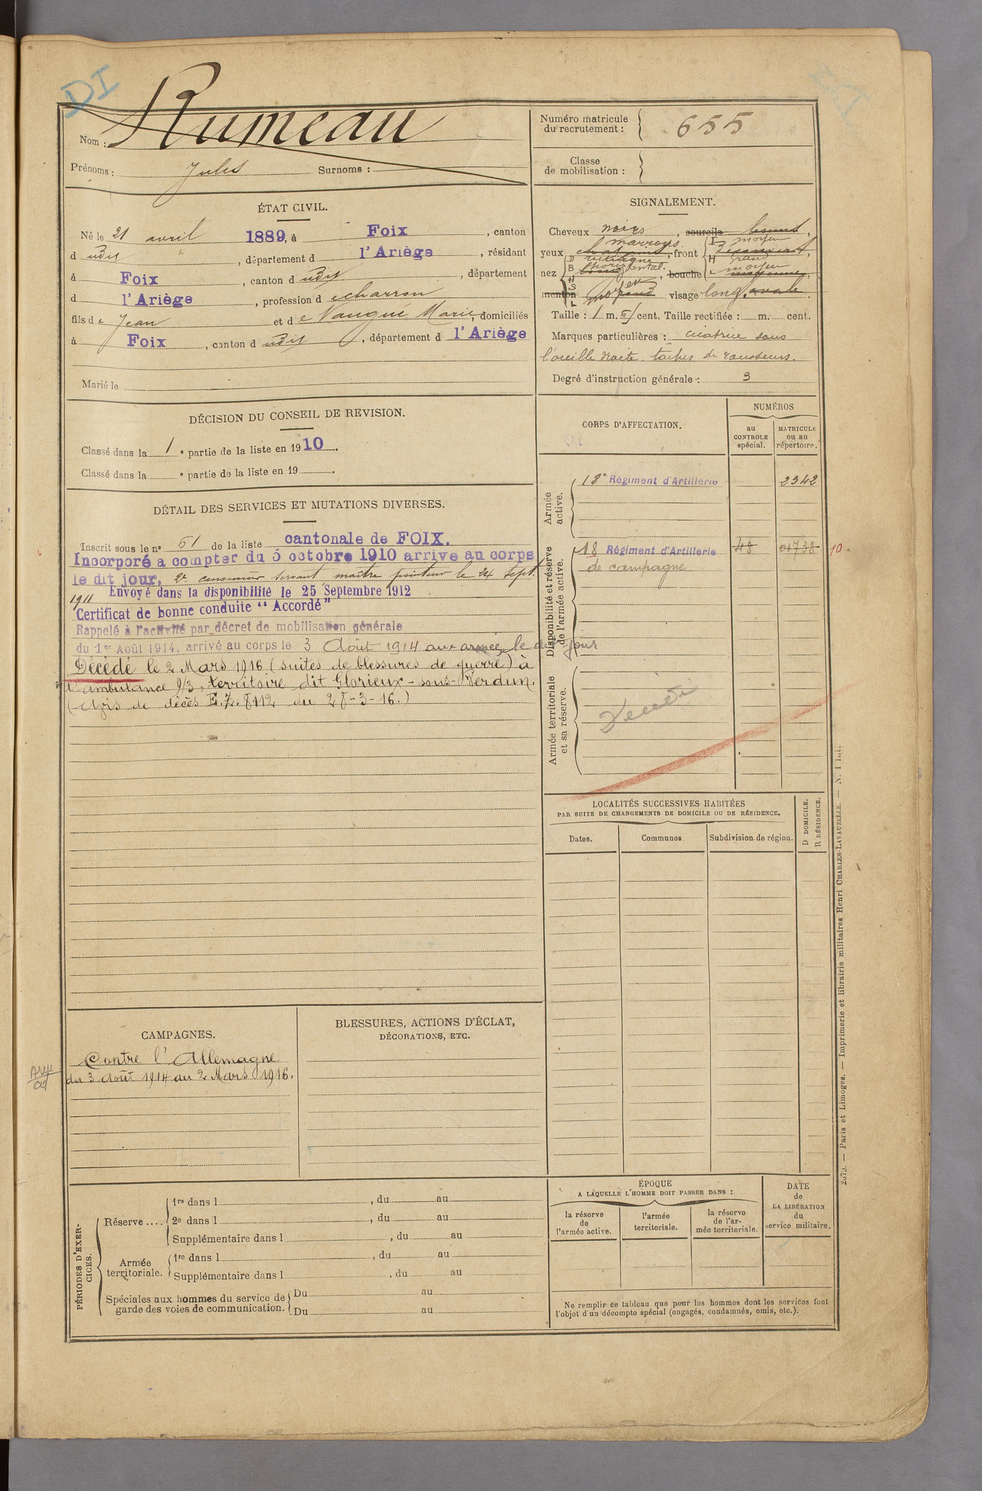 DI
Nom : Rumeau
Prénoms : Jules Surnoms :
Numéro matricule du recrutement : 655
Classe de mobilisation :
ÉTAT CIVIL.
Né le 21 avril 1889, à Foix, canton
d udit, département d l'Ariège, résidant
à Foix, canton d udit, département
d l'Ariège, profession d charron
fils de Jean et de Naugue Marie, domiciliés
à Foix, canton d udit, département d l'Ariège
Marié le
SIGNALEMENT.
Cheveux noirs, sourcils bruns,
yeux marrons, front moyen
nez rectiligne horizontal, bouche moyenne,
menton rond visage long, ovale.
Taille : 1 m. cent. Taille rectifiée : m. cent.
Marques particulières : cicatrice sous
l'oreille droite. taches de rousseurs.
Degré d'instruction générale : 3
DÉCISION DU CONSEIL DE REVISION.
Classé dans la 1e partie de la liste en 1910.
Classé dans la e partie de la liste en 19 .
DÉTAIL DES SERVICES ET MUTATIONS DIVERSES.
Inscrit sous le n° 61 de la liste cantonale de FOIX.
Incorporé a compter du 5 octobre 1910 arrive au corps
le dit jour, 2e canonnier servant, maître pointeur le 24 Sept.
1911 Envoyé dans la disponibilité le 25 Septembre 1912
Certificat de bonne conduite "Accordé"
Rappelé à l'activité par décret de mobilisation générale
du 1er Août 1914, arrivé au corps le 3 Août 1914 aux armées le dit jour
Décédé le 2 Mars 1916 (suites de blessures de guerre) à
l'ambulance 9/3, territoire dit Glorieux-sous-Verdun.
(Avis de décès 8112 du 28-3-16.)
CORPS D'AFFECTATION.
NUMÉROS
au CONTROLE spécial.
MATRICULE ou au répertoire.
Armée active.
18e Régiment d'Artillerie 2342
Disponibilité et réserve de l'armée active.
18 Régiment d'Artillerie 48 01738 10.
de campagne
Armée territoriale et sa réserve.
Décédé
LOCALITÉS SUCCESSIVES HABITÉES
PAR SUITE DE CHANGEMENTS DE DOMICILE OU DE RÉSIDENCE.
Dates. Communes Subdivision de région.
D DOMICILE.
R RÉSIDENCE.
CAMPAGNES.
Contre l'Allemagne
du 3 août 1914 au 2 Mars 1916.
BLESSURES, ACTIONS D'ÉCLAT,
DÉCORATIONS, ETC.
PÉRIODES D'EXERCICES.
Réserve .... 1re dans l , du au
2e dans l , du au
Supplémentaire dans l , du au
Armée territoriale. 1re dans l , du au
Supplémentaire dans l , du au
Spéciales aux hommes du service de garde des voies de communication. Du au
Du au
ÉPOQUE
A LAQUELLE L'HOMME DOIT PASSER DANS :
la réserve de l'armée active.
l'armée territoriale.
la réserve de l'armée territoriale.
DATE de LA LIBÉRATION du service militaire.
Ne remplir ce tableau que pour les hommes dont les services font
l'objet d'un décompte spécial (engagés, condamnés, omis, etc.).
Paris et Limoges. — Imprimerie et librairie militaires Henri CHARLES-LAVAUZELLE.